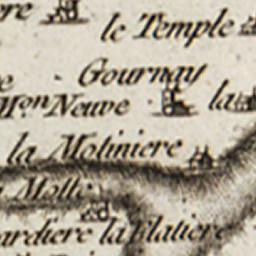 le Temple
Gournay
Mon Neuve
la
la Motiniere
Motte
ardiere la Platiere